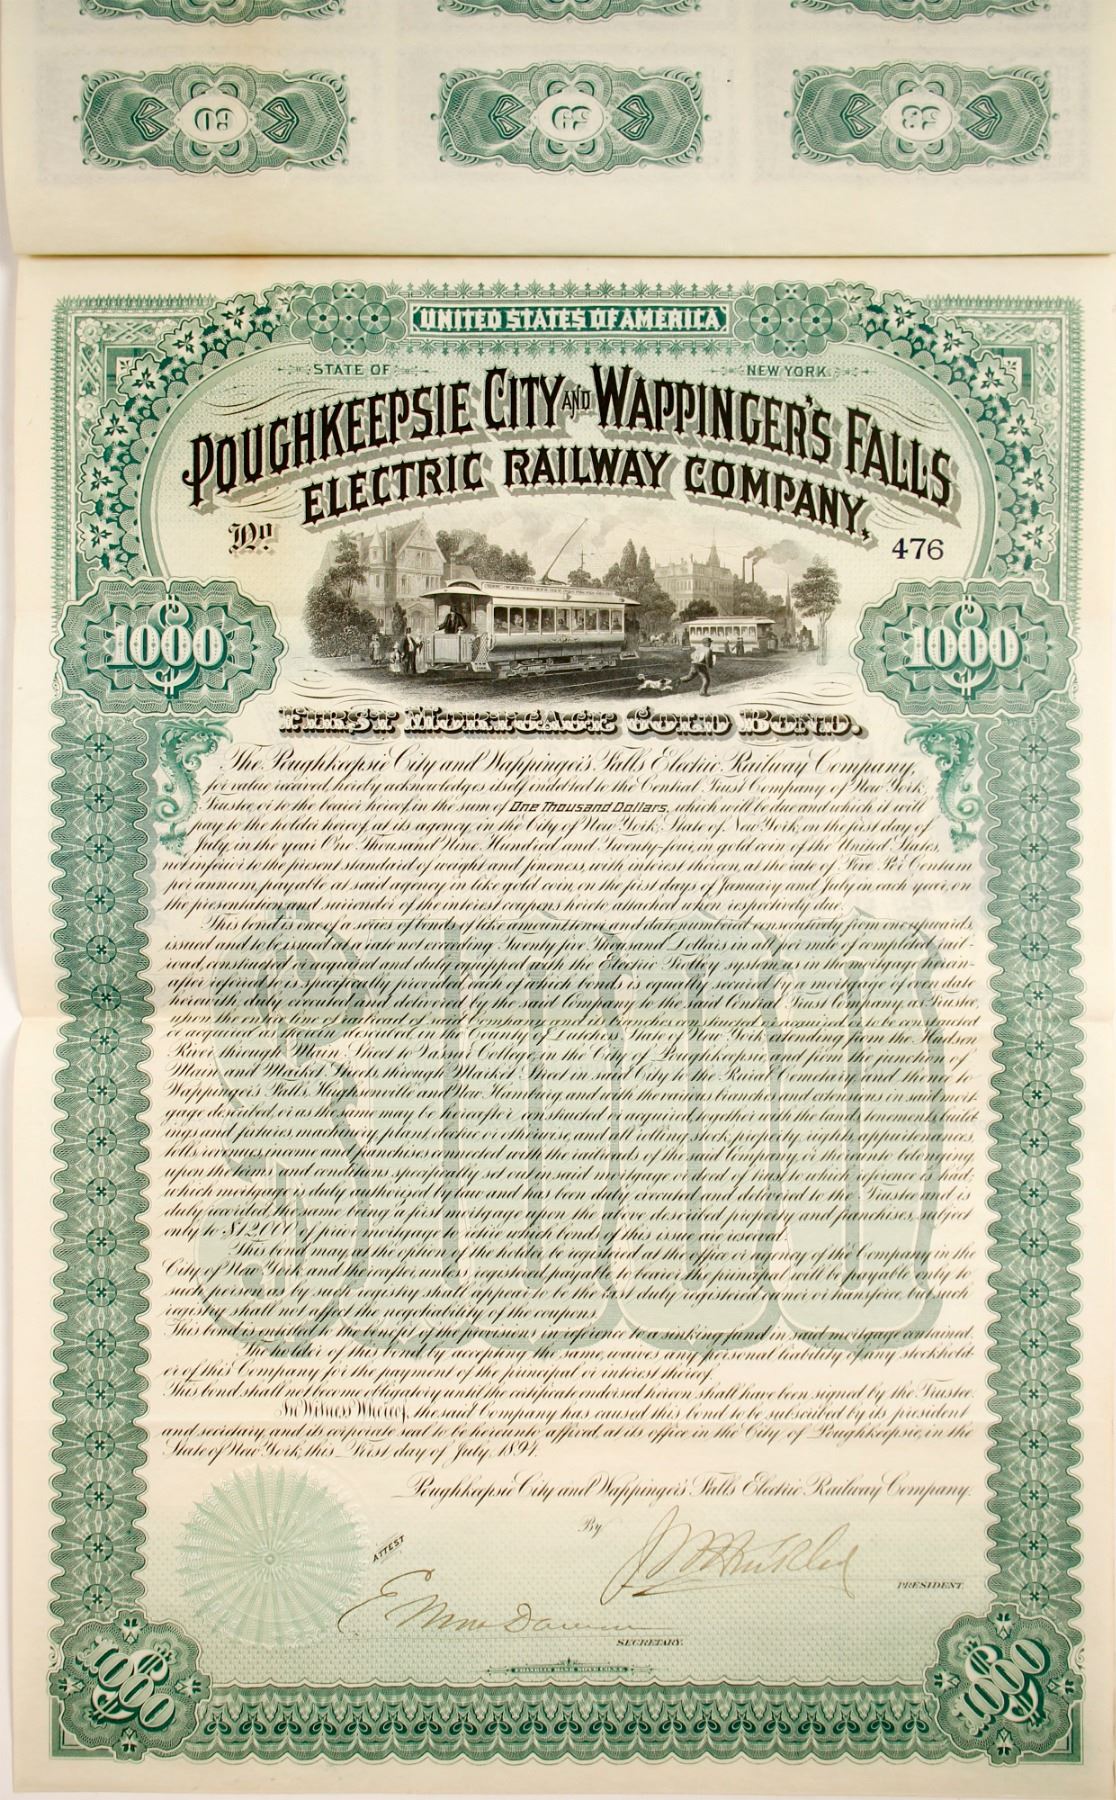 60 59 58
UNITED STATES OF AMERICA
STATE OF NEW YORK
POUGHKEEPSIE CITY AND WAPPINGER'S FALLS
ELECTRIC RAILWAY COMPANY,
No. 476
$1000 $1000
FIRST MORTGAGE GOLD BOND.
The Poughkeepsie City and Wappinger's Falls Electric Railway Company,
for value received, hereby acknowledges itself indebted to the Central Trust Company of New York,
Trustee, or to the bearer hereof, in the sum of One Thousand Dollars, which will be due and which it will
pay to the holder hereof, at its agency, in the City of New York, State of New York, on the first day of
July, in the year One Thousand Nine Hundred and Twenty-four, in gold coin of the United States,
not inferior to the present standard of weight and fineness, with interest thereon, at the rate of Five Per Centum
per annum, payable at said agency in like gold coin, on the first days of January and July in each year, on
the presentation and surrender of the interest coupons hereto attached when respectively due.
This bond is one of a series of bonds of like amount tenor and date numbered consecutively from one upwards,
issued and to be issued at a rate not exceeding Twenty five Thousand Dollars in all per mile of completed rail-
road, constructed or acquired and duly equipped with the Electric Trolley system, as in the mortgage herein-
after referred to is specifically provided, each of which bonds is equally secured by a mortgage of even date
herewith, duly executed and delivered by the said Company to the said Central Trust Company, as Trustee,
upon the entire line of railroad of said Company and its branches constructed or acquired or to be constructed
or acquired as therein described, in the County of Dutchess, State of New York, extending from the Hudson
River through Main Street to Vassar College, in the City of Poughkeepsie, and from the junction of
Main and Market Streets, through Market Street in said City to the Rural Cemetery, and thence to
Wappinger's Falls, Hughsonville and New Hamburg, and with the various branches and extensions in said mort-
gage described, or as the same may be hereafter constructed or acquired, together with the lands, tenements, build-
ings and fixtures, machinery, plant, electric or otherwise, and all rolling stock, property, rights, appurtenances,
tolls, revenues, income and franchises connected with the railroads of the said Company or thereunto belonging,
upon the terms and conditions specifically set out in said mortgage or deed of trust to which reference is had;
which mortgage is duly authorized by law and has been duly executed and delivered to the Trustee and is
duly recorded, the same being a first mortgage upon the above described property and franchises, subject
only to $12,000 of prior mortgage to retire which bonds of this issue are reserved.
This bond may, at the option of the holder, be registered at the office or agency of the Company in the
City of New York, and thereafter, unless registered payable to bearer, the principal will be payable only to
such person as by such registry shall appear to be the last duly registered owner or transferee, but such
registry shall not affect the negotiability of the coupons.
This bond is entitled to the benefit of the provisions in reference to a sinking fund in said mortgage contained.
The holder of this bond by accepting the same, waives any personal liability of any stockhold-
er of this Company for the payment of the principal or interest thereof.
This bond shall not become obligatory until the certificate endorsed hereon shall have been signed by the Trustee.
In Witness Whereof, the said Company has caused this bond to be subscribed by its president
and secretary, and its corporate seal to be hereunto affixed, at its office in the City of Poughkeepsie, in the
State of New York, this First day of July, 1894.
Poughkeepsie City and Wappinger's Falls Electric Railway Company.
By
ATTEST
PRESIDENT.
SECRETARY.
FRANKLIN BANK NOTE CO. N.Y.
$1000 $1000